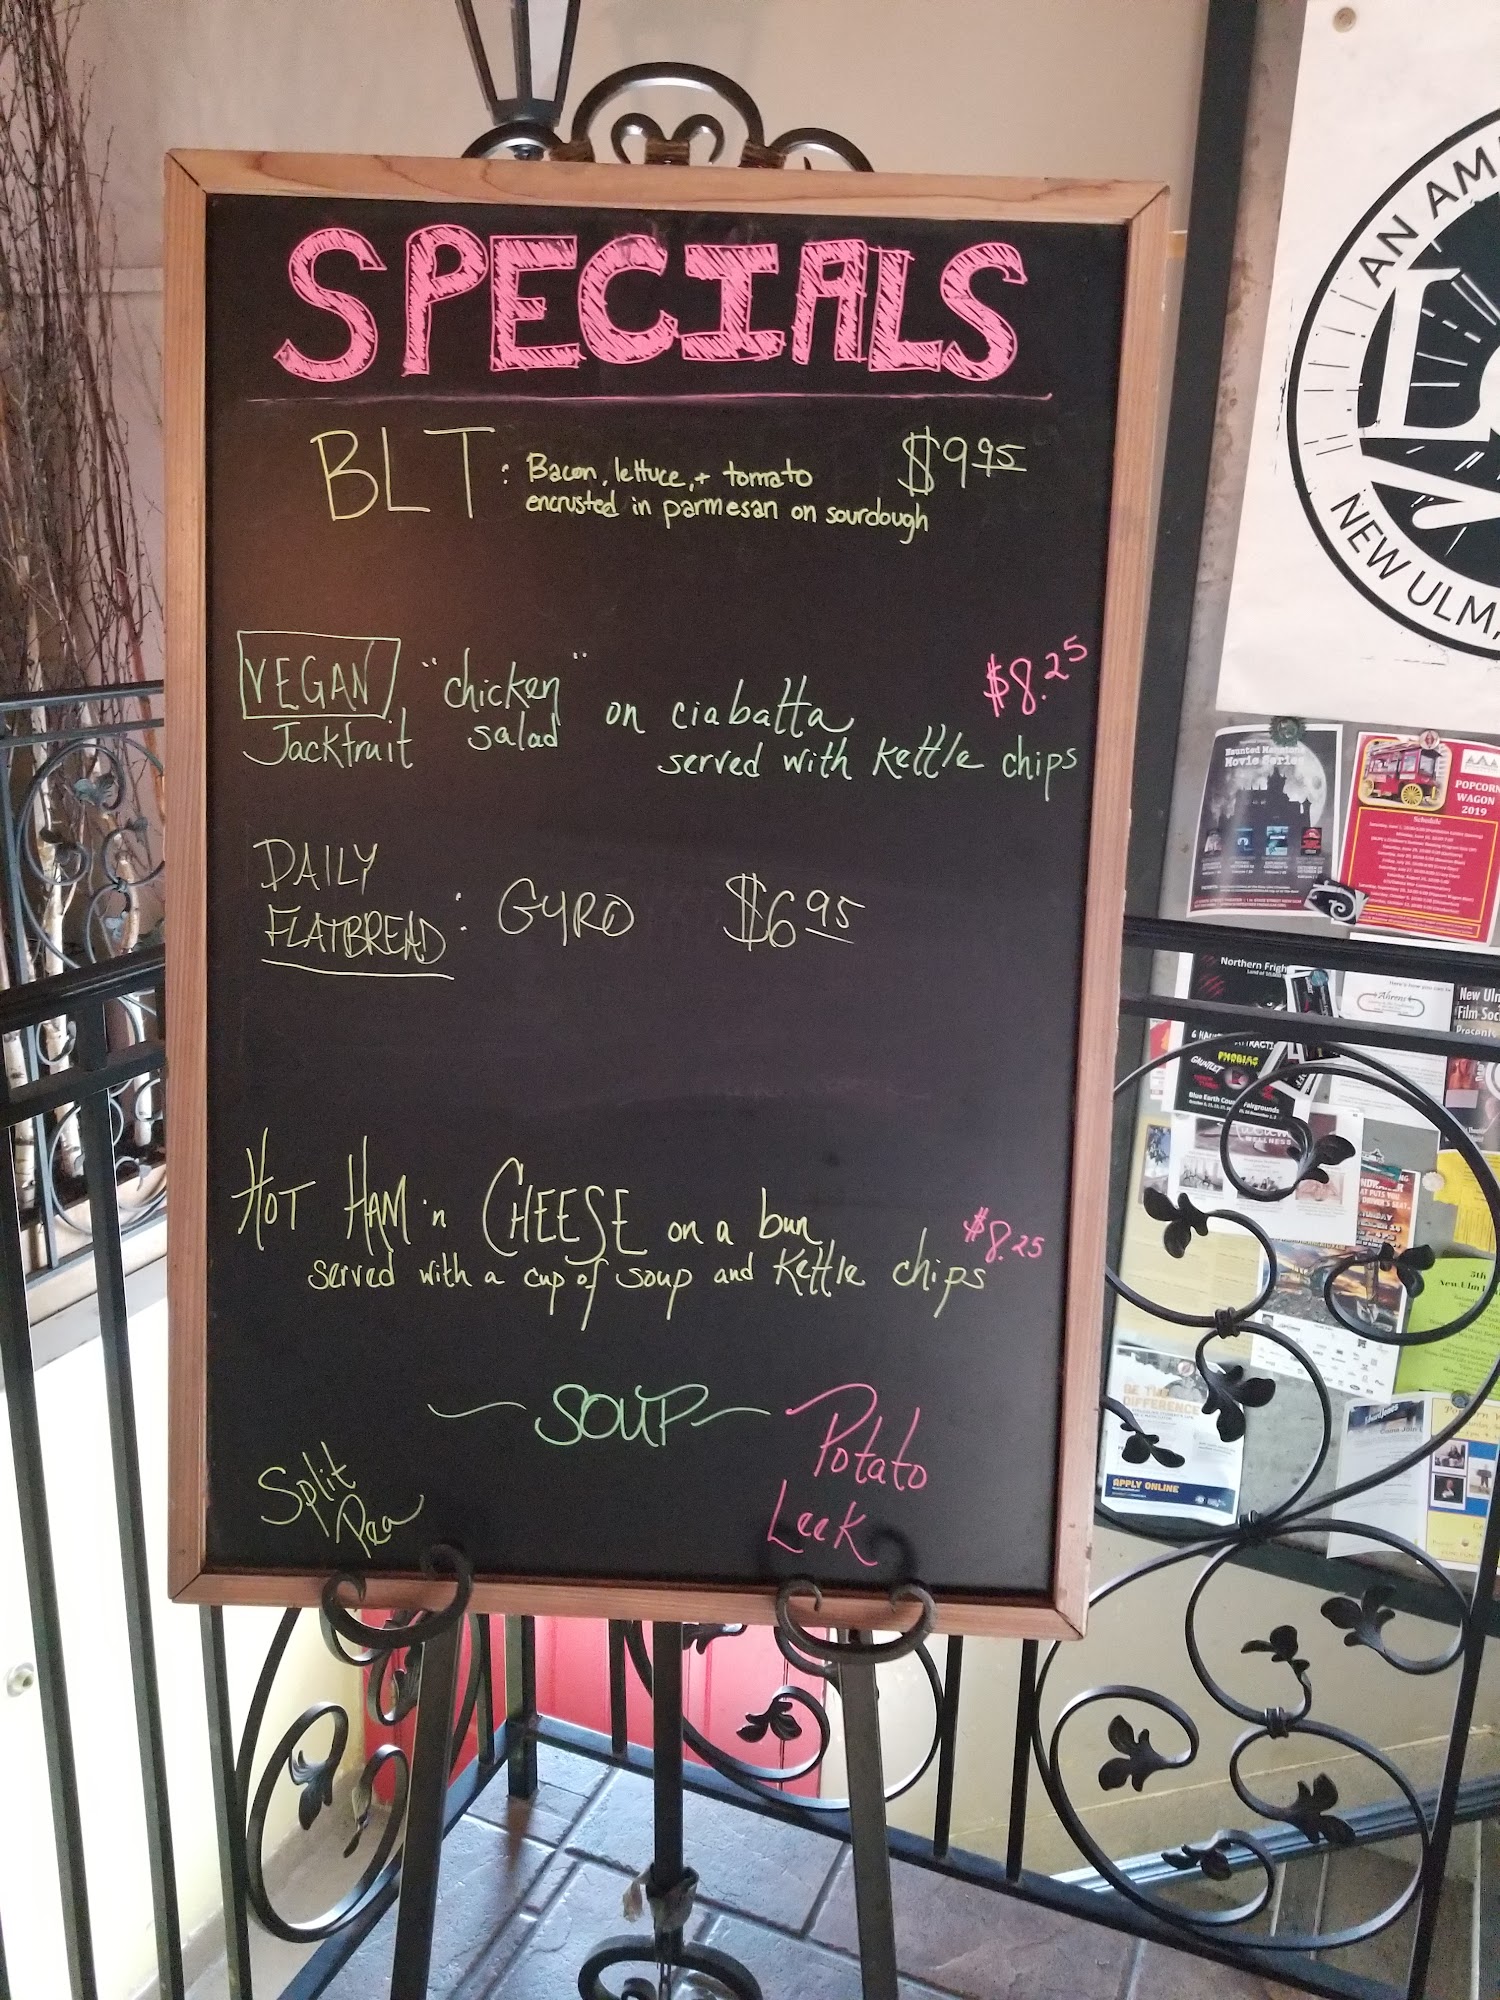 SPECIALS
BLT : Bacon, lettuce, + tomato $9.95
encrusted in parmesan on sourdough
VEGAN "chicken" on ciabatta $8.25
Jackfruit salad served with Kettle chips
DAILY
FLATBREAD : GYRO $6.95
HOT HAM 'n CHEESE on a bun $8.25
served with a cup of soup and Kettle chips
~ SOUP ~
Split
Pea
Potato
Leek
AN AM
NEW ULM
Haunted
Movie Series
POPCORN
WAGON
2019
Schedule
Northern Frigh
Ahrens
New Ulm
Film Soc
Presents
GAUNTLET
PHOBIAS
Blue Earth Coun Fairgrounds
WELLNESS
5th
New Ulm
BE THE
DIFFERENCE
APPLY ONLINE